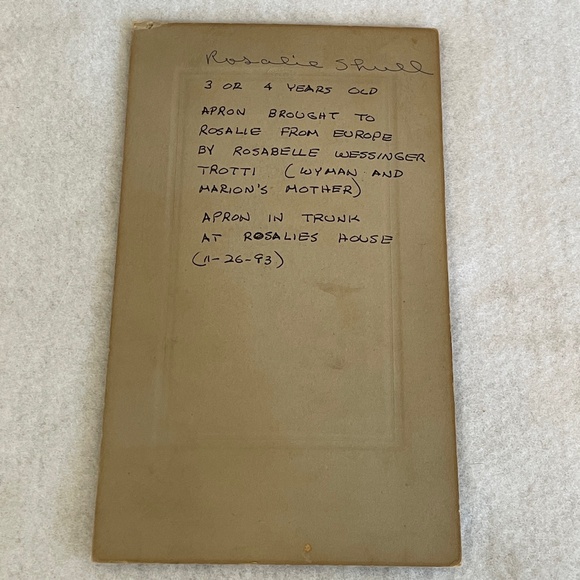 Rosalie Shull
3 OR 4 YEARS OLD
APRON BROUGHT TO
ROSALIE FROM EUROPE
BY ROSABELLE WESSINGER
TROTTI (WYMAN AND
MARION'S MOTHER)
APRON IN TRUNK
AT ROSALIES HOUSE
(11-26-93)